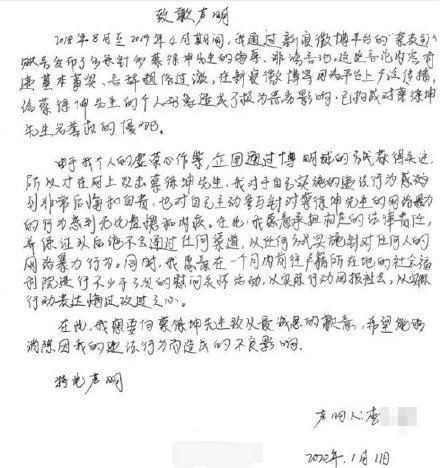 致歉声明
2018年8月至2019年4月期间，我通过新浪微博平台的
账号发布了多条针对蔡徐坤先生的侮辱、诽谤言论，这些言论内容有
违基本事实、言辞粗俗过激，在新浪微博等网络平台上广泛传播，
给蔡徐坤先生的个人形象造成了极为恶劣影响，已构成对蔡徐坤
先生名誉权的侵犯。
由于我个人的虚荣心作祟，企图通过博眼球的方式获得关注，
所以才在网上攻击蔡徐坤先生，我对于自己实施的违法行为感
到非常后悔和自责，也对自己主动参与针对蔡徐坤先生的网络暴力
的行为感到无比羞愧和内疚。在此，我愿意承担相应的法律责任，
并保证以后绝不会通过任何渠道，以任何方式实施针对任何人的
网络暴力行为。同时，我愿意在一个月内前往户籍所在地的社会福
利院进行不少于3次的慰问关怀活动，以实际行动回报社会，以实际
行动表达悔过改过之心。
在此，我想要向蔡徐坤先生致以最诚恳的歉意，希望能够
消除因我的违法行为而造成的不良影响。
特此声明
声明人：李
2020年1月11日